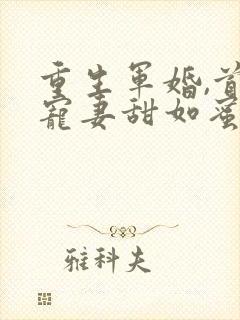 重生军婚,首
宠妻甜如蜜
雅科夫